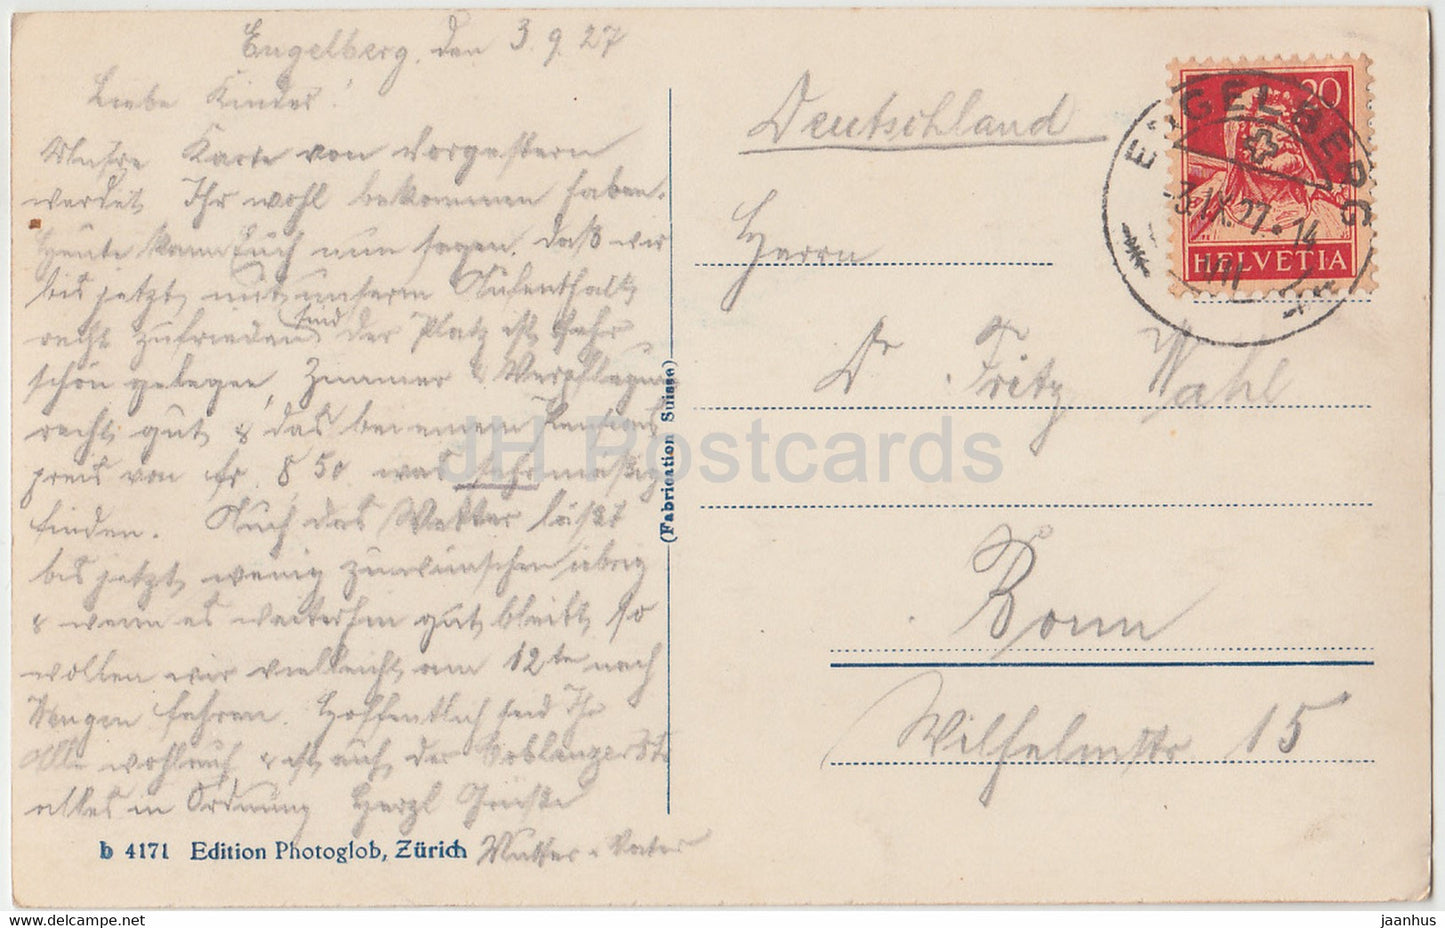 Engelberg, den 3.9.27
Liebe Kinder!
Unsre Karte von vorgestern
werdet Ihr wohl bekommen haben.
Heute kann Euch nun sagen, daß wir
bis jetzt mit unserm Aufenthalt
recht zufrieden sind der Platz ist sehr
schön gelegen, Zimmer & Verpflegung
recht gut & das bei einem Pensions
preis von fr. 8 50 was sehr mäßig
finden. Auch das Wetter läßt
bis jetzt wenig zu wünschen übrig
& wenn es weiterhin gut bleibt, so
wollen wir vielleicht am 12te nach
fahren. Hoffentlich seid Ihr
Alle wohlauf & ist auch der Coblenzerstr
alles in Ordnung Herzl Grüße
Mutter u Vater
b 4171 Edition Photoglob, Zürich
(Fabrication Suisse)
Deutschland
Herrn
Dr Fritz Wahl
Bonn
Wilhelmstr 15
20
HELVETIA
ENGELBERG
-3.IX.27.14
VIII
JH Postcards
www.delcampe.net
jaanhus